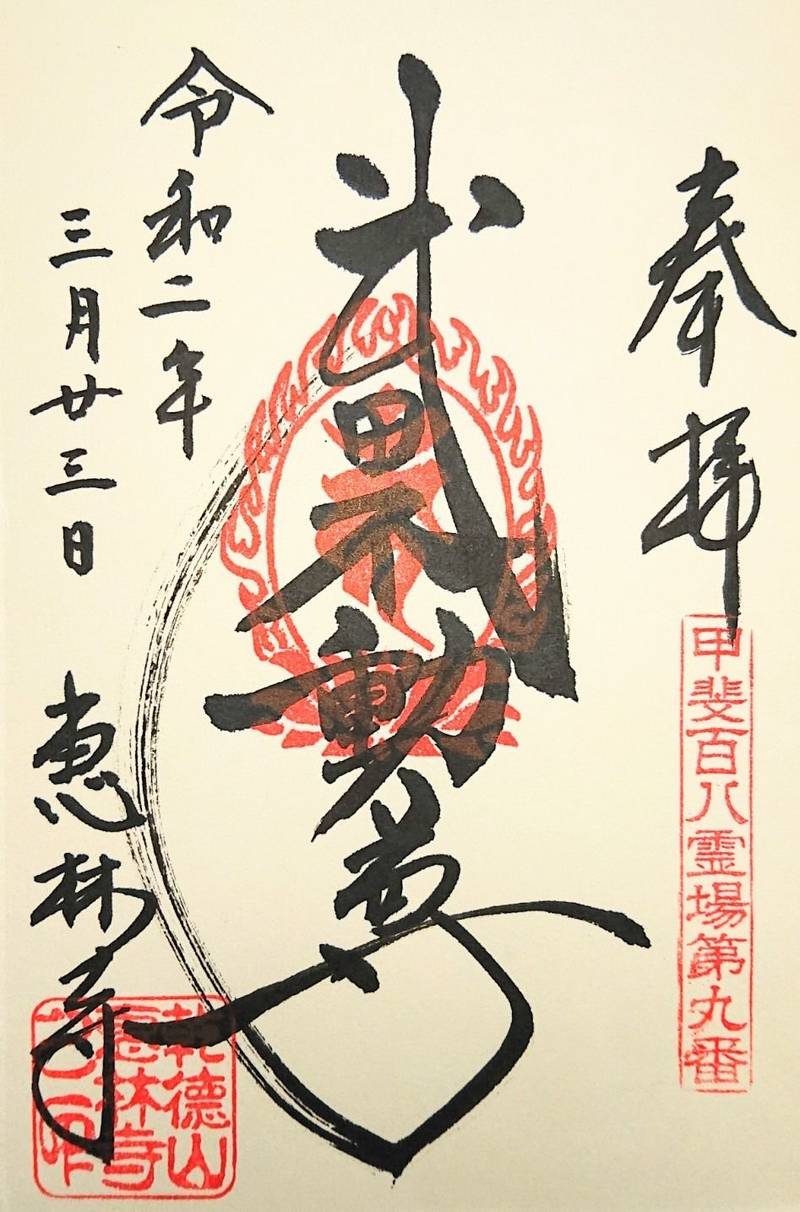 奉拝
甲斐百八霊場第九番
武田不動尊
令和二年
三月廿三日
恵林寺
乾徳山
恵林寺